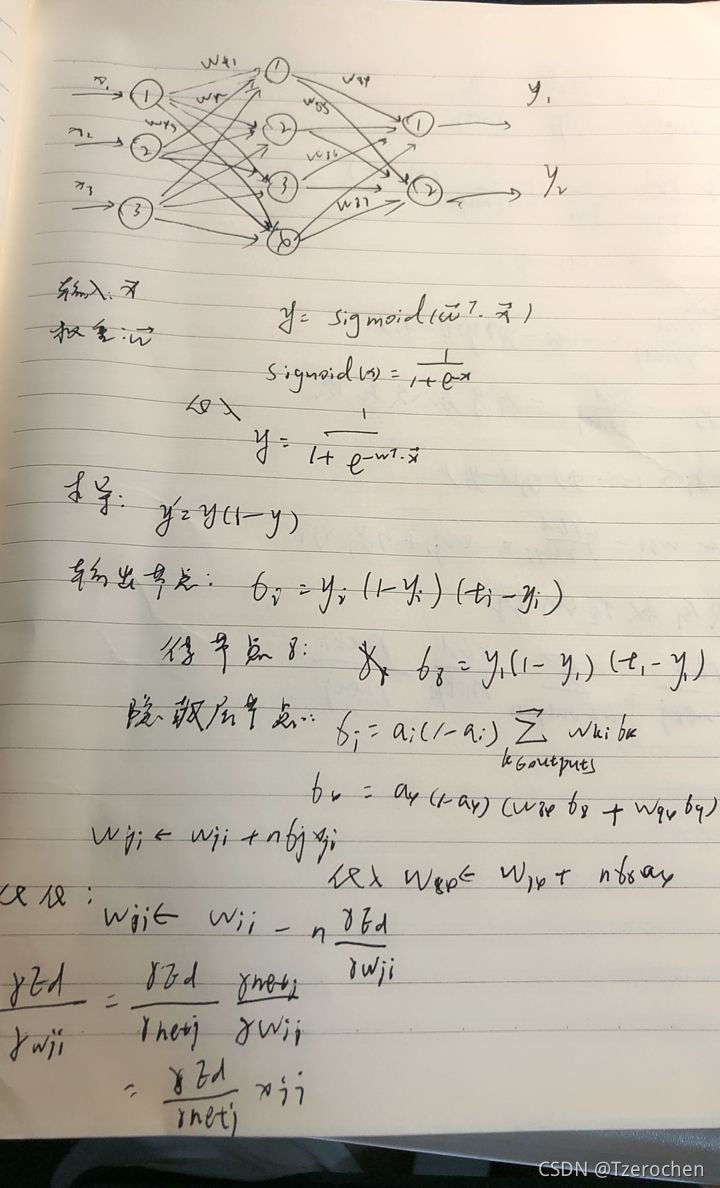 x₁ w41 w84 y₁
① ① ①
w4 w85
x₂ w43 ②
② ③ w86 ② y₂
x₃ w87
③
输入: x⃗
权重: w⃗
y = sigmoid(w⃗ᵀ·x⃗)
sigmoid(x) = 1/(1+e^-x)
代入
y = 1/(1+e^-wᵀ·x⃗)
求导:
y' = y(1-y)
输出节点: δi = yi (1-yi) (ti-yi)
节点8: δ8 = y₁(1-y₁) (t₁-y₁)
隐藏层节点: δi = ai(1-ai) Σ k∈outputs wki δk
δ4 = a4(1-a4) (w84 δ8 + w94 δ9)
wji ← wji + ηδj xji
代入 w84 ← w84 + ηδ8 a4
wji ← wji - η ∂Ed/∂wji
∂Ed/∂wji = ∂Ed/∂netj ∂netj/∂wji
= ∂Ed/∂netj xji
CSDN @Tzerochen